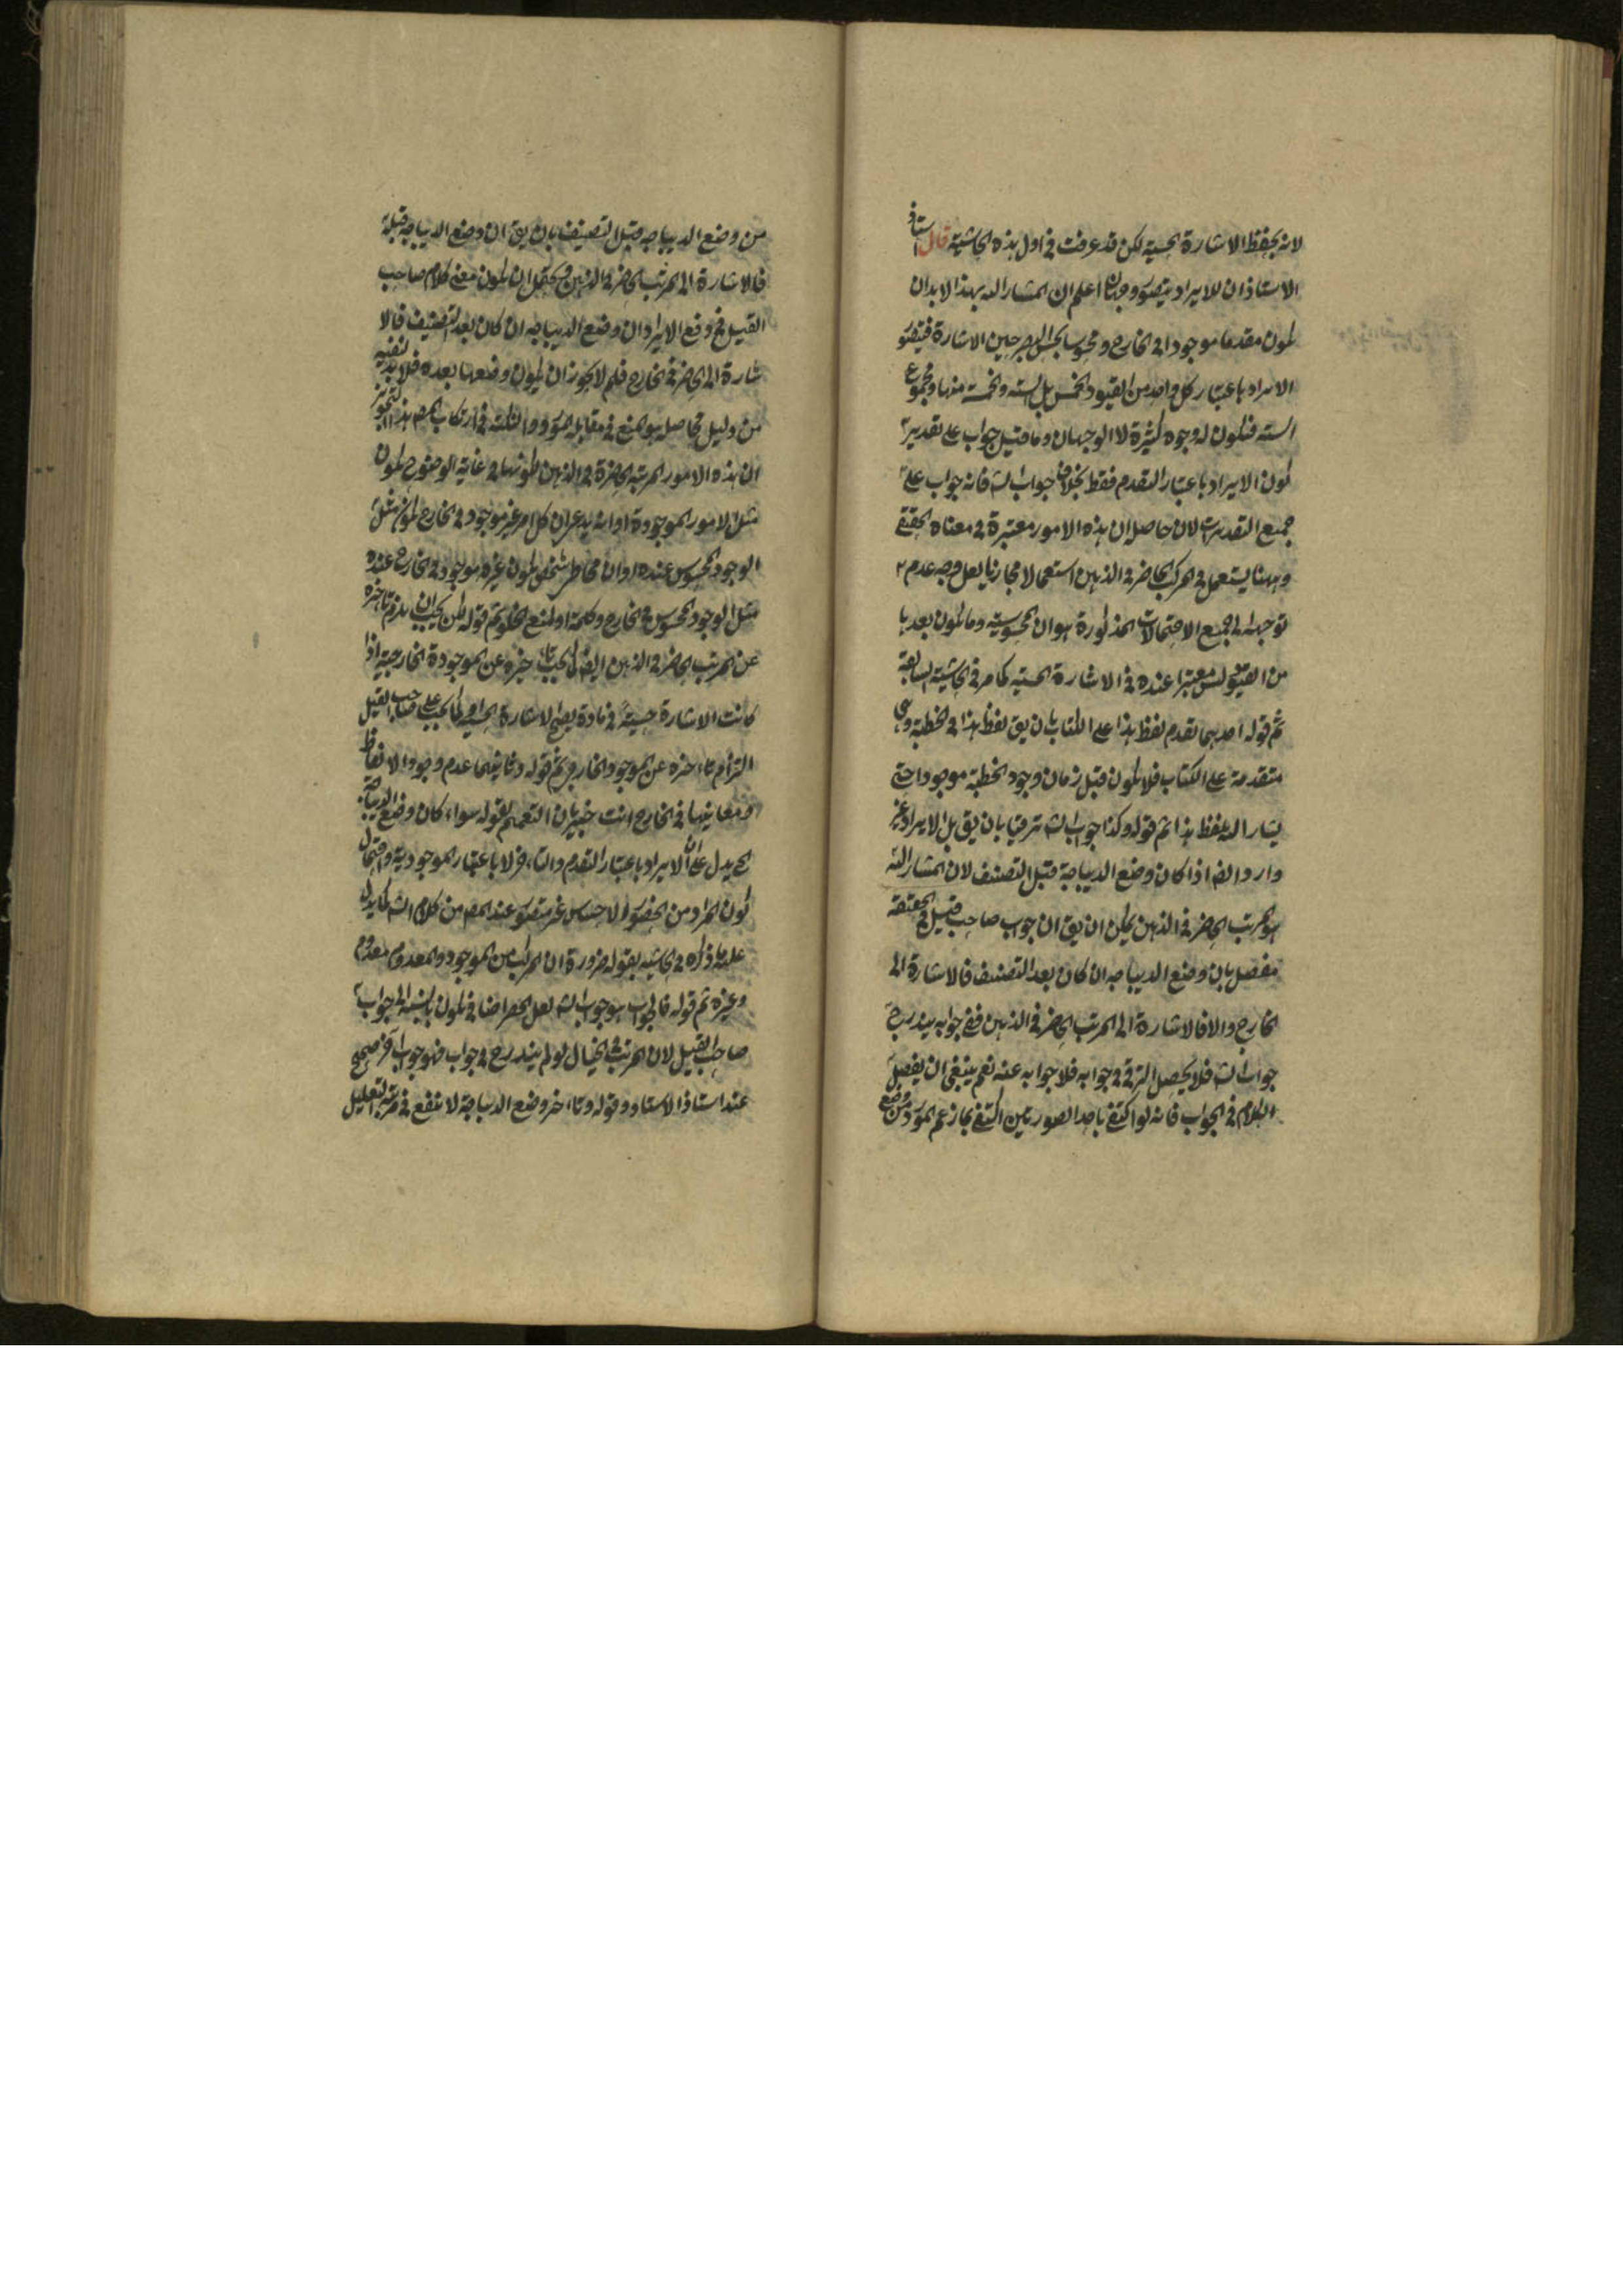 لانه يحفظ الاشارة الحسية لكن قد عرفت فى اول هذه الحاشية قال استاذ
الاستاذ ان للايراد يتصور وجهان اعلم ان المشار اليه بهذا لا بد ان
يكون مقدما موجودا فى الخارج ومحسوسا بحس البصر حين الاشارة فيتصور
الايراد باعتبار كل واحد من القيود الخمس بل الستة والخمسة منها ومجموع
الستة فيكون له وجوه كثيرة لا الوجهان وما قيل جواب على تقدير
كون الايراد باعتبار التقدم فقط بخلاف جواب الش فانه جواب على
جميع التقديرات لان حاصله ان هذه الامور معتبرة فى معناه الحقيقى
وههنا يستعمل فى المركب الحاضر فى الذهن استعمالا مجازيا لعل وجه عدم
توجهه الى جميع الاحتمالات المذكورة هو ان المحسوسية وما يكون بعدها
من القيود ليس معتبرا عنده فى الاشارة الحسية كما مر فى الحاشية السابقة
ثم قوله احدهما تقدم لفظ هذا على الكتاب بان يق لفظ هذا فى الخطبة وهى
متقدمة على الكتاب فلا يكون قبل زمان وجود الخطبة موجودا حتى
يشار اليه بلفظ هذا ثم قوله وكذا جواب الش ترقيا بان يق بل الايراد غير
وارد ايضا اذا كان وضع الديباجة قبل التصنيف لان المشار اليه
هو المرتب الحاضر فى الذهن يمكن ان يق ان جواب صاحب قيل فى الحقيقة
مفصل بان وضع الديباجه ان كان بعد التصنيف فالاشارة الى
الخارج والا فالاشارة الى المرتب الحاضر فى الذهن ففى جوابه يندرج
جواب الش فلا يحصل الترقى فى جوابه فلا جواب عنه نعم ينبغى ان يفصل
الكلام فى الجواب فانه لو اكتفى باحد الصورتين اكتفى بما زعم المورد من وضع
من وضع الديباجه قبل التصنيف بان يق ان وضع الديباجه قبله
فالاشارة الى المرتب الحاضر فى الذهن ويحتمل ان يكون معنى كلام صاحب
القيل فى دفع الايراد ان وضع الديباجه ان كان بعد التصنيف فالا
شارة الى الحاضر فى الخارج فلم لا يجوز ان يكون وضعها بعده فلا بد لنفيه
من دليل فحاصله هو المنع فى مقابلة المورد والنكتة فى ارتكاب المص هذا التجوز
ان هذه الامور المرتبة الحاضرة فى الذهن لكونها فى غاية الوضوح يكون
مثل الامور الموجودة او انه يدعى ان كل امر غير موجود فى الخارج يكون مثل
الوجود المحسوس عنده او ان مخاطبه شخص يكون غيره موجود فى الخارج عنده
مثل الوجود المحسوس فى الخارج وكلمة او لمنع الخلو ثم قوله لكن يجب ان يلزم تاخره
عن المرتب الحاضر فى الذهن ايضا كما يجب تاخره عن الموجودة الخارجية اذا
كانت الاشارة حسية فى مادة يصح الاشارة الحسية كما يجب على صاحب القيل
التزام تاخره عن الموجود الخارجى ثم قوله وثانيهما عدم وجود الالفاظ
ومعانيها فى الخارج انت خبير بان التعميم بقوله سواء كان وضع الديباجة
الخ يدل على ان الايراد باعتبار التقدم والتاخر لا باعتبار الموجودية واحتمال
كون المراد من الحضور الاحساس غير متصور عند المص من كلام الش كما يدل
عليه ما ذكره فى الحاشية بقوله ضرورة ان المركب من الموجود والمعدوم معدوم
وغيره ثم قوله فالجواب هو جواب الش لعل الحصر اضافى يكون بالنسبة الى جواب
صاحب القيل لان المرتب فى الخيال لو لم يندرج فى جواب فهو جواب آخر صحيح
عند استاذ الاستاد وقوله وتاخر وضع الديباجة لا ينفع فى مرتبة التعليل